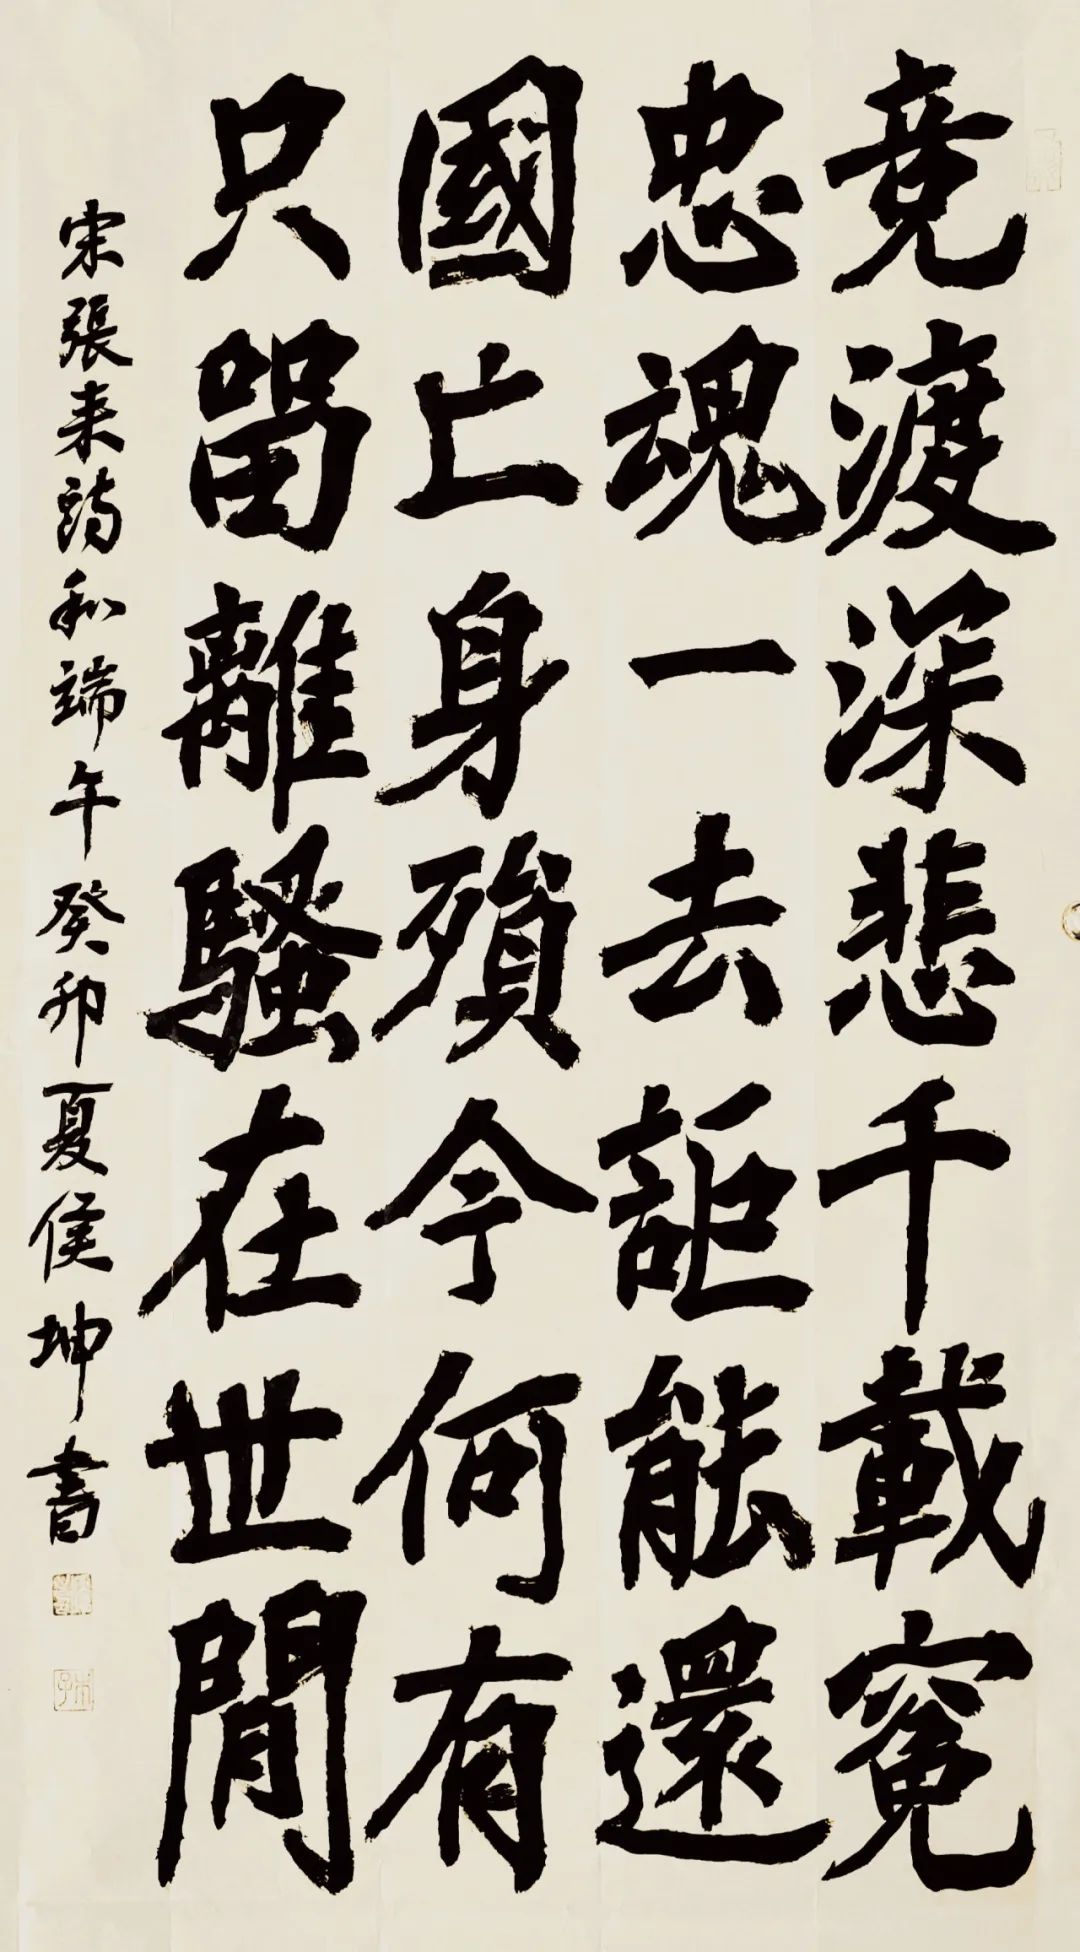 竞渡深悲千載冤
忠魂一去詎能還
國亡身殞今何有
只留離騷在世間
宋張耒詩和端午癸卯夏侯坤書